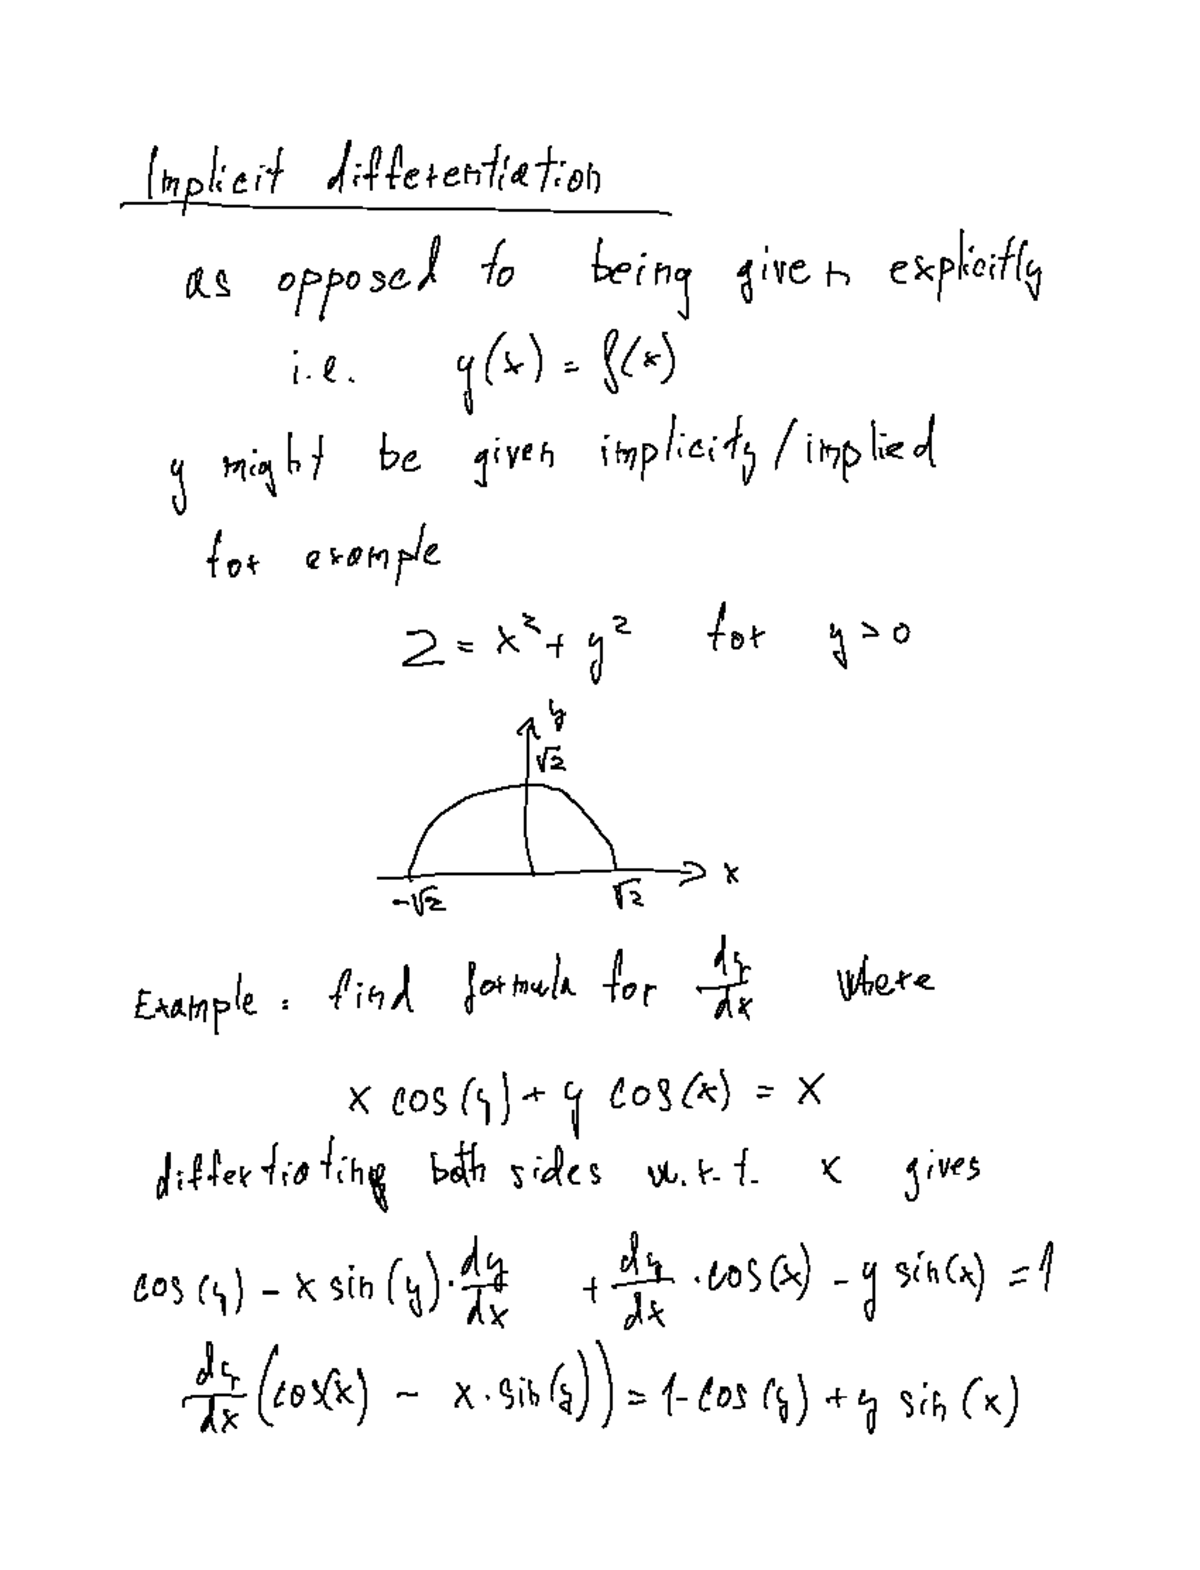 Implicit differentiation
as opposed to being given explicitly
i.e. y(x) = f(x)
y might be given implicity / implied
for example
2 = x² + y² for y > 0
y
√2
x
-√2 √2
Example: find formula for dy/dx where
x cos(y) + y cos(x) = x
differtiating both sides w.r.t. x gives
cos(y) - x sin(y) · dy/dx + dy/dx · cos(x) - y sin(x) = 1
dy/dx (cos(x) - x · sin(y)) = 1 - cos(y) + y sin(x)